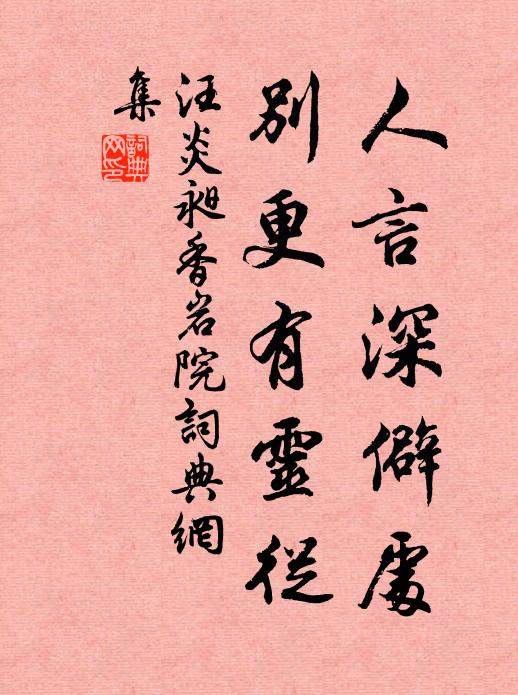 人言深僻處
別更有靈從
汪炎昶香岩院詞典網
集
詞典
网印